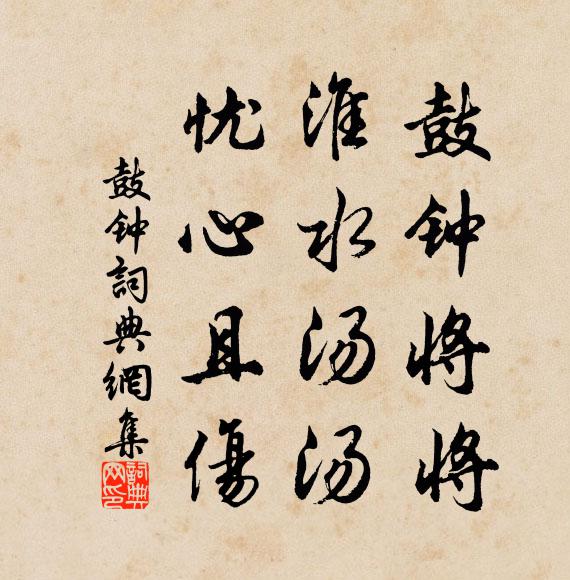 鼓钟将将
淮水汤汤
忧心且傷
鼓钟詞典網集
詞典网印